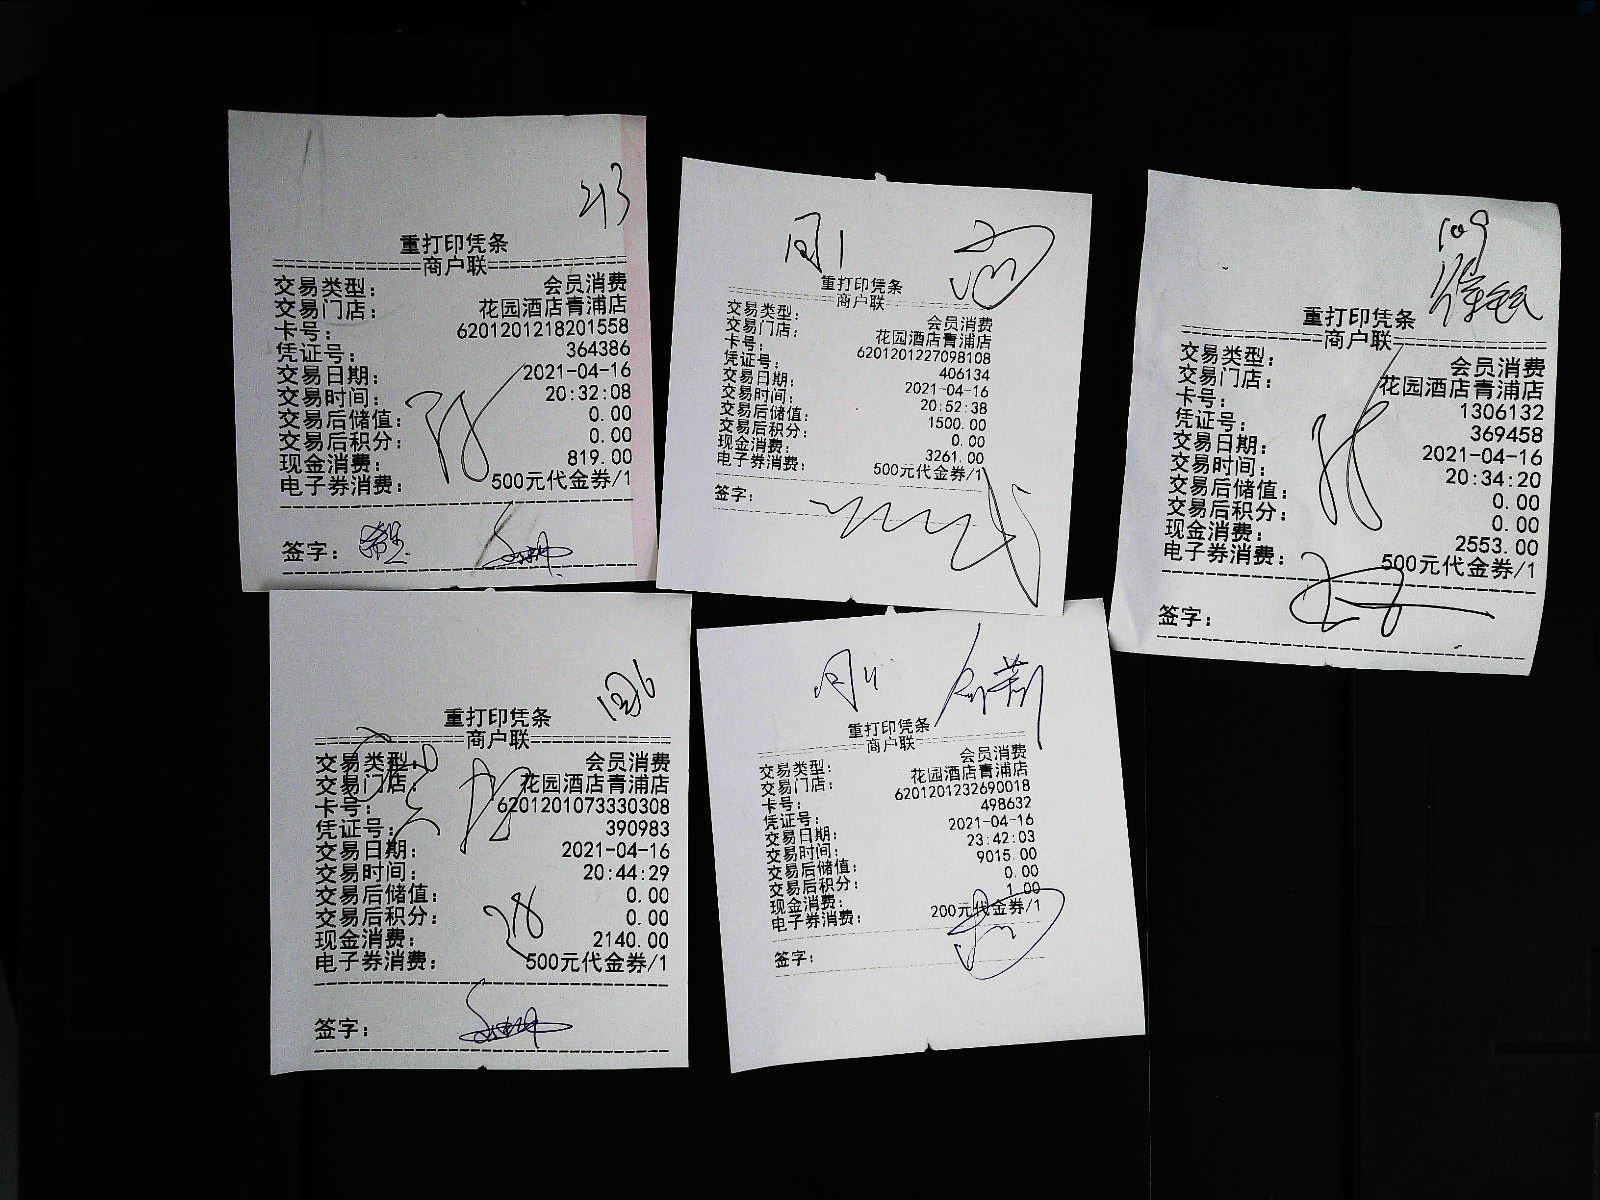 213
重打印凭条
商户联
交易类型: 会员消费
交易门店: 花园酒店青浦店
卡号: 6201201218201558
凭证号: 364386
交易日期: 2021-04-16
交易时间: 20:32:08
交易后储值: 0.00
交易后积分: 0.00
现金消费: 819.00
电子券消费: 500元代金券/1
签字:
重打印凭条
商户联
交易类型: 会员消费
交易门店: 花园酒店青浦店
卡号: 6201201227098108
凭证号: 406134
交易日期: 2021-04-16
交易时间: 20:52:38
交易后储值: 1500.00
交易后积分: 0.00
现金消费: 3261.00
电子券消费: 500元代金券/1
签字:
109
重打印凭条
商户联
交易类型: 会员消费
交易门店: 花园酒店青浦店
卡号: 1306132
凭证号: 369458
交易日期: 2021-04-16
交易时间: 20:34:20
交易后储值: 0.00
交易后积分: 0.00
现金消费: 2553.00
电子券消费: 500元代金券/1
签字:
重打印凭条
商户联
交易类型: 会员消费
交易门店: 花园酒店青浦店
卡号: 6201201073330308
凭证号: 390983
交易日期: 2021-04-16
交易时间: 20:44:29
交易后储值: 0.00
交易后积分: 0.00
现金消费: 2140.00
电子券消费: 500元代金券/1
签字:
重打印凭条
商户联
交易类型: 会员消费
交易门店: 花园酒店青浦店
卡号: 6201201232690018
凭证号: 498632
交易日期: 2021-04-16
交易时间: 23:42:03
交易后储值: 9015.00
交易后积分: 0.00
现金消费: 1.00
电子券消费: 200元代金券/1
签字: